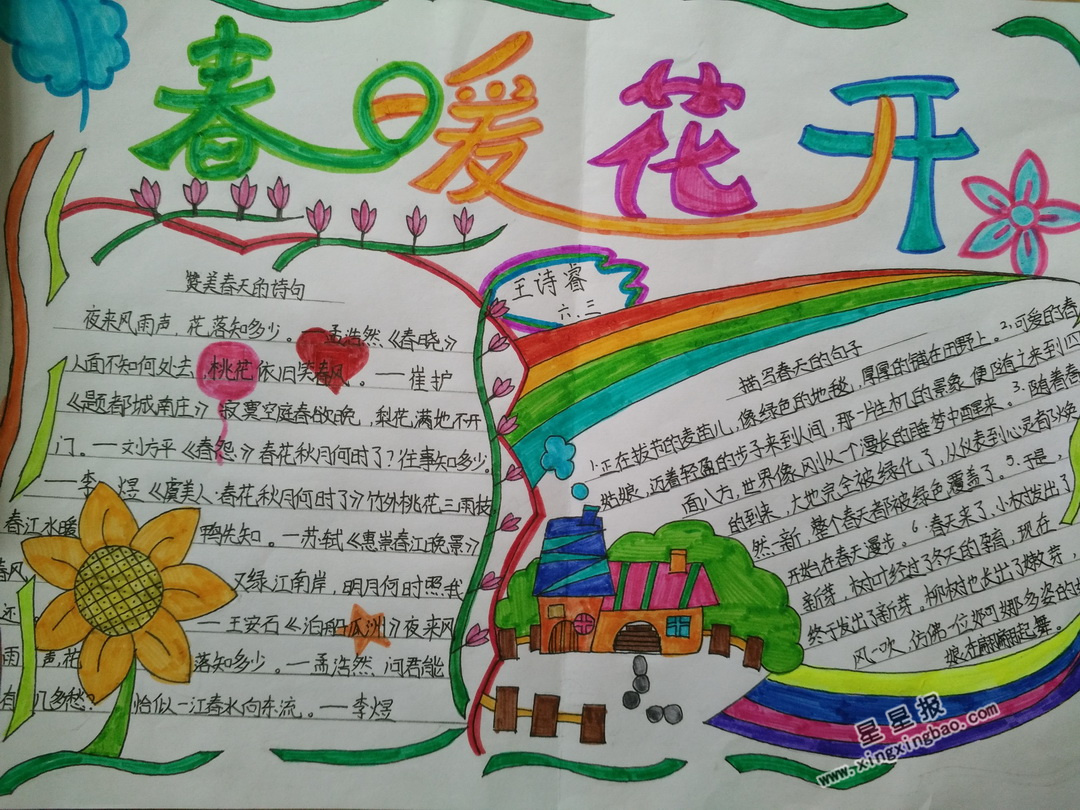 春日暖花开
王诗睿
六.三
赞美春天的诗句
夜来风雨声,花落知多少。——孟浩然《春晓》
人面不知何处去,桃花依旧笑春风。——崔护
《题都城南庄》寂寞空庭春欲晚,梨花满地不开
门。——刘方平《春怨》春花秋月何时了?往事知多少。
——李煜《虞美人·春花秋月何时了》竹外桃花三两枝
春江水暖鸭先知。——苏轼《惠崇春江晚景》
春风又绿江南岸,明月何时照我
还。——王安石《泊船瓜洲》夜来风
雨声,花落知多少。——孟浩然 问君能
有几多愁?恰似一江春水向东流。——李煜
描写春天的句子
1.正在拔节的麦苗儿,像绿色的地毯,厚厚的铺在田野上。2.可爱的春
姑娘,迈着轻盈的步子来到人间,那一片生机的景象,便随之来到四
面八方,世界像刚从一个漫长的睡梦中醒来。3.随着春
的到来,大地完全被绿化了,从仪表到心灵都焕
然一新,整个春天都被绿色覆盖了。5.于是,
开始在春天漫步。6.春天来了,小树发出了
新芽,树叶经过了冬天的孕育,现在
终于发出了新芽。柳树也长出了嫩芽,
风一吹,仿佛一位婀娜多姿的姑
娘在翩翩起舞。
星星报
www.xingxingbao.com